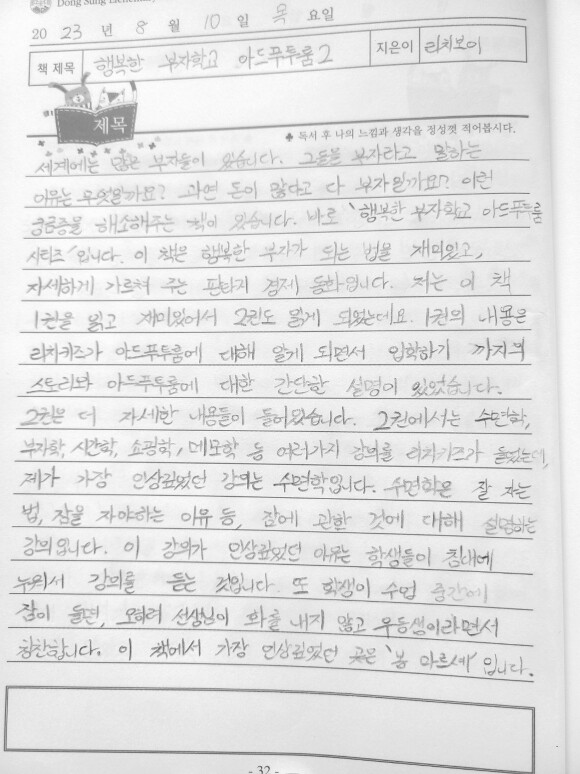 Dong Sung Elementary
2023년 8월 10일 목요일
책 제목 행복한 부자학교 아드푸투룸2 지은이 리치보이
제목
♣ 독서 후 나의 느낌과 생각을 정성껏 적어봅시다.
세계에는 많은 부자들이 있습니다. 그들을 부자라고 말하는
이유는 무엇일까요? 과연 돈이 많다고 다 부자일까요? 이런
궁금증을 해소해주는 책이 있습니다. 바로 '행복한 부자학교 아드푸투룸
시리즈'입니다. 이 책은 행복한 부자가 되는 법을 재미있고,
자세하게 가르쳐 주는 판타지 경제 동화입니다. 저는 이 책
1권을 읽고 재미있어서 2권도 읽게 되었는데요. 1권의 내용은
리치키즈가 아드푸투룸에 대해 알게 되면서 입학하기 까지의
스토리와 아드푸투룸에 대한 간단한 설명이 있었습니다.
2권은 더 자세한 내용들이 들어있습니다. 2권에서는 수면학,
부자학, 시간학, 쇼핑학, 메모학 등 여러가지 강의를 리치키즈가 들었는데,
제가 가장 인상깊었던 강의는 수면학입니다. 수면학은 잘 자는
법, 잠을 자야하는 이유 등, 잠에 관한 것에 대해 설명하는
강의입니다. 이 강의가 인상깊었던 이유는 학생들이 침대에
누워서 강의를 듣는 것입니다. 또 학생이 수업 중간에
잠이 들면, 오히려 선생님이 화를 내지 않고 우등생이라면서
칭찬합니다. 이 책에서 가장 인상깊었던 곳은 '봉 마르셰'입니다.
- 32 -